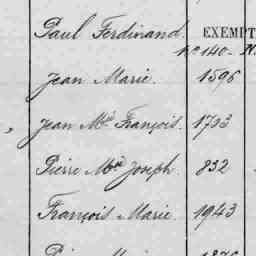 Paul Ferdinand. EXEMPT
No 140.
Jean Marie. 1596
Jean Mie François. 1793
Pierre Mie Joseph. 832
François Marie. 1943